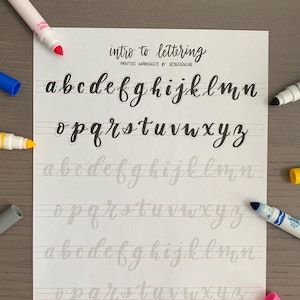 intro to lettering
PRACTICE WORKSHEET BY
abcdefghijklmn
opqrstuvwxyz
abcdefghijklmn
opqrstuvwxyz
abcdefghijklmn
opqrstuvwxyz